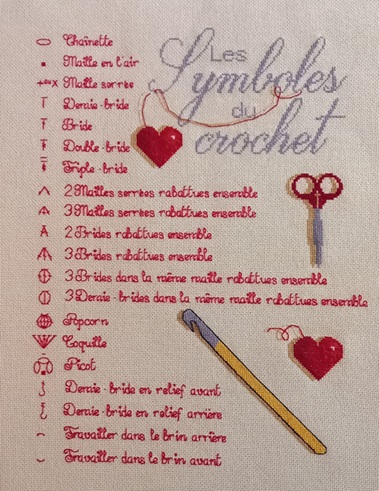 Les
Symboles
du
crochet
Chaînette
Maille en l'air
+ou x Maille serrée
Demie-bride
Bride
Double-bride
Triple-bride
2 Mailles serrées rabattues ensemble
3 Mailles serrées rabattues ensemble
2 Brides rabattues ensemble
3 Brides rabattues ensemble
3 Brides dans la même maille rabattues ensemble
3 Demie-brides dans la même maille rabattues ensemble
Popcorn
Coquille
Picot
Demie-bride en relief avant
Demie-bride en relief arrière
Travailler dans le brin arrière
Travailler dans le brin avant